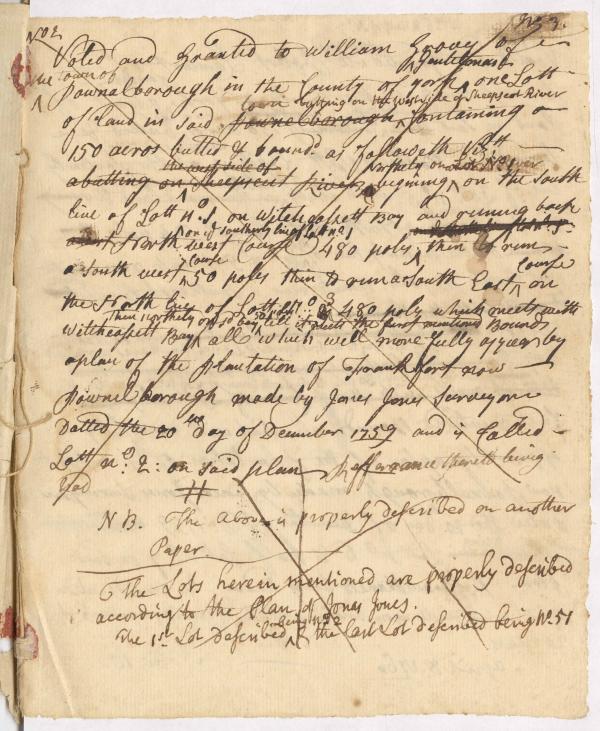 No 2
No. 3.
Voted and Granted to William Groves of
Gentleman
the Town of
Pownalborough in the County of York, one Lott
Town butting on the west side of Sheepscot River
of land in said Pownelborough, Containing
150 acres butted & bound.d as followeth Vizt
the west side of Northerly on Lot No. 1
abutting on Sheepscut River begining on the South
line of Lott no. 1, on Witchcassett Bay and runing back
on ye southerly line of Lott no. 1
North west Course 480 poles, then to run
Course Course
a South west 50 poles then to run a South East on
the North line of Lott No. 3 480 poly which meets with
Then northerly on sd Bay 50 poles till it meets the first mentiond Bounds
Witchcassett Bay all which will more fully appear by
a plan of the Plantation of Frankfort now
Pownelborough made by Jones Jones Surveyor
Datted the 20 day of December 1759 and is Called
Lott no. 2: on said plan Refferance thereto being
had
NB. The above is properly described on another
Paper
The Lots herein mentioned are properly described
according to the Plan of Jonas Jones.
being No. 2
The 1st Lot described, & the last Lot described being No. 51